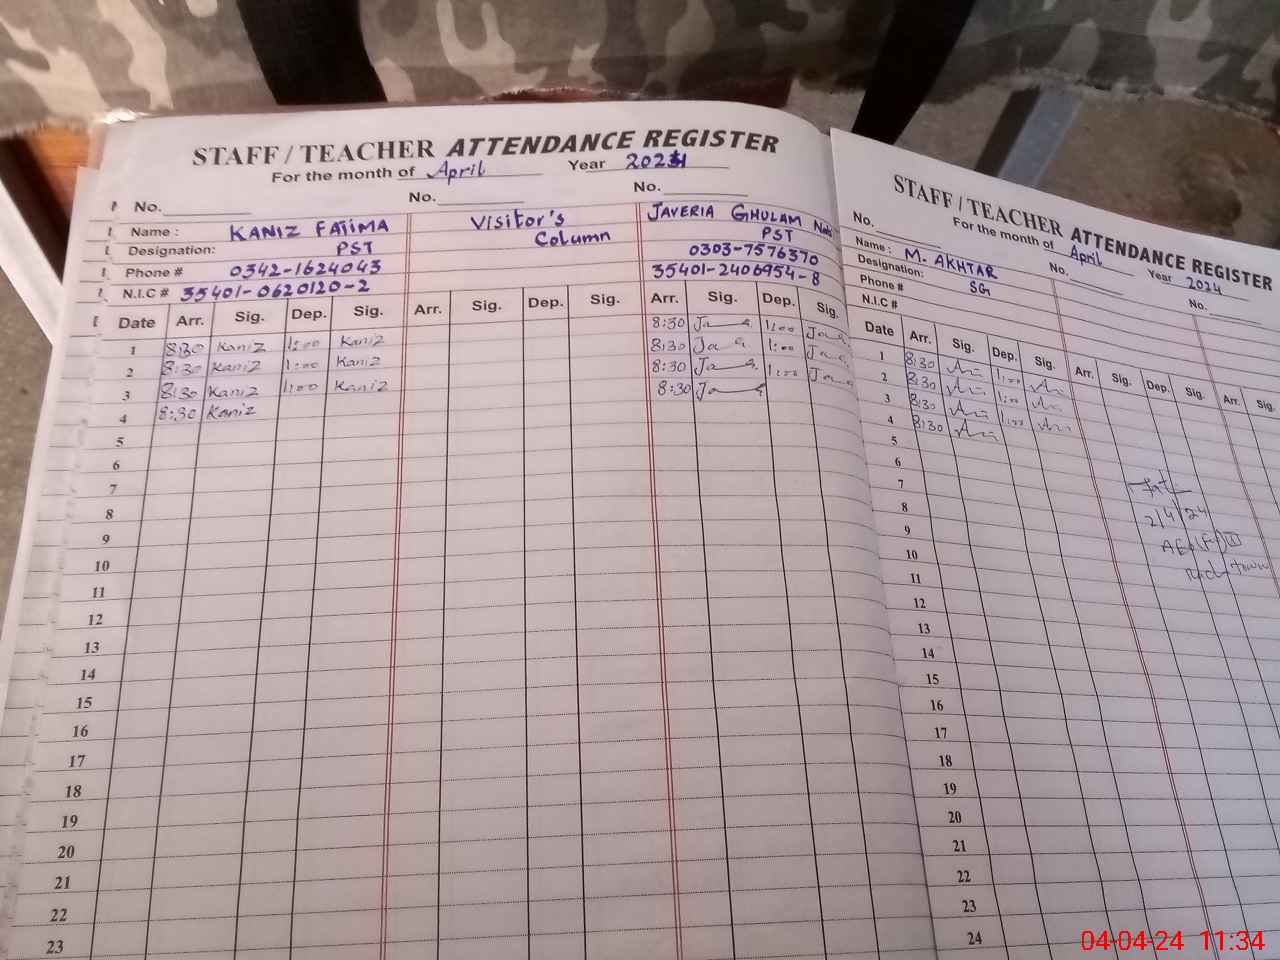 STAFF / TEACHER ATTENDANCE REGISTER
For the month of April Year 2024
No. No. No.
Name : KANIZ FATIMA Visitor's JAVERIA GHULAM
Designation: PST Column PST
Phone # 0342-1624043 0303-7576370
N.I.C # 35401-0620120-2 35401-2406954-8
Date Arr. Sig. Dep. Sig. Arr. Sig. Dep. Sig. Arr. Sig. Dep. Sig.
1 8:30 Kaniz 1:00 Kaniz 8:30 Ja 1:00 Ja
2 8:30 Kaniz 1:00 Kaniz 8:30 Ja 1:00 Ja
3 8:30 Kaniz 1:00 Kaniz 8:30 Ja 1:00 Ja
4 8:30 Kaniz 8:30 Ja
5
6
7
8
9
10
11
12
13
14
15
16
17
18
19
20
21
22
23
STAFF / TEACHER ATTENDANCE REGISTER
For the month of April Year 2024
No. No. No.
Name : M. AKHTAR
Designation: SG
Phone #
N.I.C #
Date Arr. Sig. Dep. Sig. Arr. Sig. Dep. Sig. Arr. Sig.
1 8:30 1:00
2 8:30 1:00
3 8:30 1:00
4 8:30
5
6
7
8 2/4/24
9
10
11
12
13
14
15
16
17
18
19
20
21
22
23
24
04-04-24 11:34